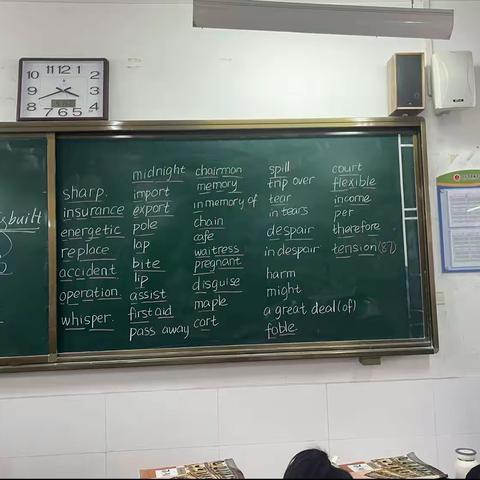 built
sharp.
insurance
energetic
replace
accident
operation
whisper.
midnight
import
export
pole
lap
bite
lip
assist
first aid
pass away
chairmon
memory
in memory of
chain
cafe
waitress
pregnant
disguise
maple
cort
spill
trip over
tear
in tears
despair
in despair
harm
might
a great deal (of)
foble
court
flexible
income
per
therefore
tension (87)